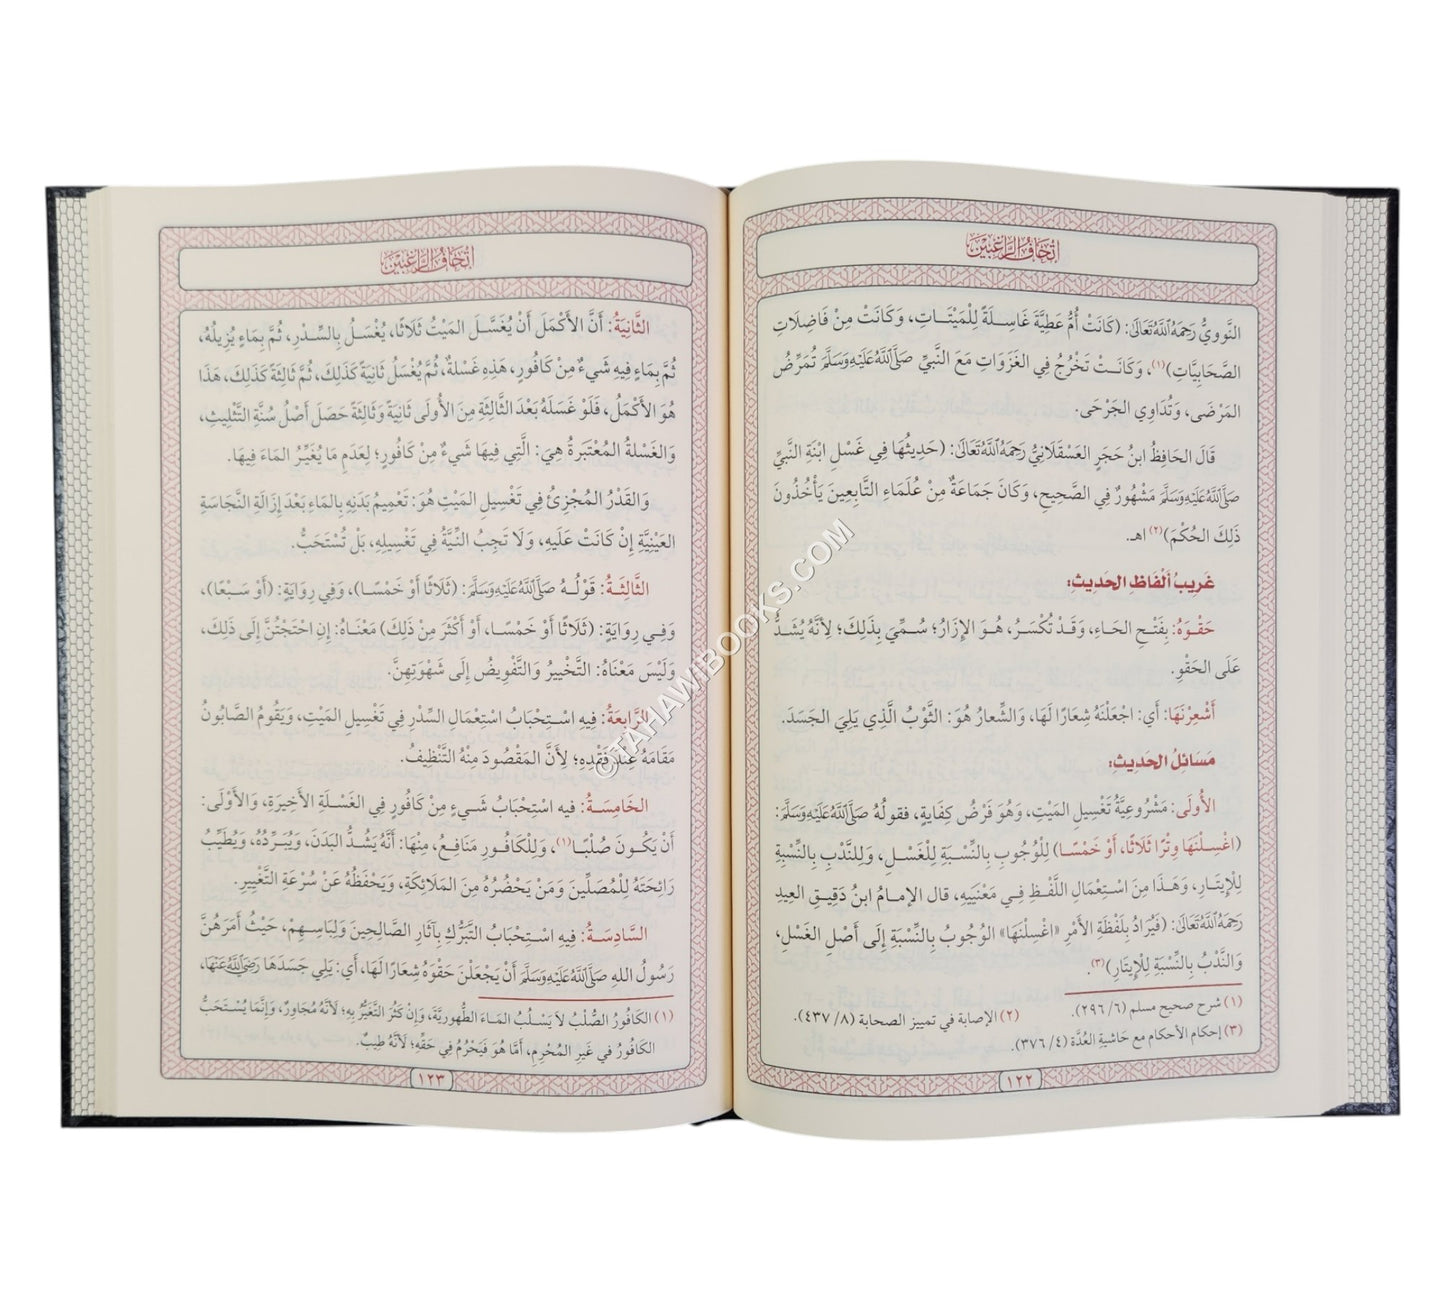 إتحاف الراغبين
النَّوويُّ رَحِمَهُ اللَّهُ تَعَالَى: (كَانَتْ أُمُّ عَطِيَّةَ غَاسِلَةً لِلْمَيْتَاتِ، وَكَانَتْ مِنْ فَاضِلَاتِ
الصَّحَابِيَّاتِ)(١)، وَكَانَتْ تَخْرُجُ فِي الغَزَوَاتِ مَعَ النَّبِيِّ صَلَّى اللَّهُ عَلَيْهِ وَسَلَّمَ تُمَرِّضُ
المَرْضَى، وَتُدَاوِي الجَرْحَى.
قَالَ الحَافِظُ ابنُ حَجَرٍ العَسْقَلَانِيُّ رَحِمَهُ اللَّهُ تَعَالَى: (حَدِيثُهَا فِي غَسْلِ ابْنَةِ النَّبِيِّ
صَلَّى اللَّهُ عَلَيْهِ وَسَلَّمَ مَشْهُورٌ فِي الصَّحِيحِ، وَكَانَ جَمَاعَةٌ مِنْ عُلَمَاءِ التَّابِعِينَ يَأْخُذُونَ
ذَلِكَ الحُكْمَ)(٢) اهـ.
غَرِيبُ أَلْفَاظِ الحَدِيثِ:
حَقْوَهُ: بِفَتْحِ الحَاءِ، وَقَدْ تُكْسَرُ، هُوَ الإِزَارُ؛ سُمِّيَ بِذَلِكَ؛ لِأَنَّهُ يُشَدُّ
عَلَى الحَقْوِ.
أَشْعِرْنَهَا: أَي: اجْعَلْنَهُ شِعَارًا لَهَا، وَالشِّعَارُ هُوَ: الثَّوْبُ الَّذِي يَلِيَ الجَسَدَ.
مَسَائِلُ الحَدِيثِ:
الأُولَى: مَشْرُوعِيَّةُ تَغْسِيلِ المَيْتِ، وَهُوَ فَرْضُ كِفَايَةٍ، فقولُهُ صَلَّى اللَّهُ عَلَيْهِ وَسَلَّمَ:
(اغْسِلْنَهَا وِتْرًا ثَلَاثًا، أَوْ خَمْسًا) لِلْوُجُوبِ بِالنِّسْبَةِ لِلْغَسْلِ، وَلِلنَّدْبِ بِالنِّسْبَةِ
لِلْإِيتَارِ، وَهَذَا مِنَ اسْتِعْمَالِ اللَّفْظِ فِي مَعْنَيَيهِ، قال الإمامُ ابنُ دَقِيقِ العِيدِ
رَحِمَهُ اللَّهُ تَعَالَى: (فَيُرَادُ بِلَفْظَةِ الأَمْرِ «اغْسِلْنَهَا» الوُجُوبُ بِالنِّسْبَةِ إِلَى أَصْلِ الغَسْلِ،
وَالنَّدْبُ بِالنِّسْبَةِ لِلْإِيتَارِ)(٣).
(١) شرح صحيح مسلم (٦/ ٢٩٦). (٢) الإصابة في تمييز الصحابة (٨/ ٤٣٧).
(٣) إحكام الأحكام مع حَاشيةِ العُدَّة (٤/ ٣٧٦).
١٢٢
إتحاف الراغبين
الثَّانِيَةُ: أَنَّ الأَكْمَلَ أَنْ يُغَسَّلَ المَيْتُ ثَلَاثًا، يُغْسَلُ بِالسِّدْرِ، ثُمَّ بِمَاءٍ يُزِيلُهُ،
ثُمَّ بِمَاءٍ فِيهِ شَيءٌ مِنْ كَافُورٍ، هَذِهِ غَسْلةٌ، ثُمَّ يُغْسَلُ ثَانِيَةً كَذَلِكَ، ثُمَّ ثَالِثَةً كَذَلِكَ، هَذَا
هُوَ الأَكْمَلُ، فَلَوْ غَسَلَهُ بَعْدَ الثَّالِثَةِ مِنَ الأُولَى ثَانِيَةً وَثَالِثَةً حَصَلَ أَصْلُ سُنَّةِ التَّثْلِيثِ،
وَالغَسْلةُ المُعْتَبَرةُ هِيَ: الَّتِي فِيهَا شَيءٌ مِنْ كَافُورٍ؛ لِعَدَمِ مَا يُغَيِّرُ المَاءَ فِيهَا.
وَالقَدْرُ المُجْزِئُ فِي تَغْسِيلِ المَيْتِ هُوَ: تَعْمِيمُ بَدَنِهِ بِالمَاءِ بَعْدَ إِزَالَةِ النَّجَاسَةِ
العَيْنِيَّةِ إِنْ كَانَتْ عَلَيهِ، وَلَا تَجِبُ النِّيَّةُ فِي تَغْسِيلِهِ، بَلْ تُسْتَحَبُّ.
الثَّالِثَةُ: قَوْلُهُ صَلَّى اللَّهُ عَلَيْهِ وَسَلَّمَ: (ثَلَاثًا أَوْ خَمْسًا)، وَفِي رِوَايَةٍ: (أَوْ سَبْعًا)،
وَفِي رِوَايَةٍ: (ثَلَاثًا أَوْ خَمْسًا، أَوْ أَكْثَرَ مِنْ ذَلِكَ) مَعْنَاهُ: إِنِ احْتَجْتُنَّ إِلَى ذَلِكَ،
وَلَيْسَ مَعْنَاهُ: التَّخْيِيرُ وَالتَّفْوِيضُ إِلَى شَهْوَتِهِنَّ.
الرَّابِعَةُ: فِيهِ اسْتِحْبَابُ اسْتِعْمَالِ السِّدْرِ فِي تَغْسِيلِ المَيْتِ، وَيَقُومُ الصَّابُونُ
مَقَامَهُ عِنْدَ فَقْدِهِ؛ لِأَنَّ المَقْصُودَ مِنْهُ التَّنْظِيفُ.
الخَامِسَةُ: فيه اسْتِحْبَابُ شَيءٍ مِنْ كَافُورٍ فِي الغَسْلَةِ الأَخِيرَةِ، وَالأَوْلَى:
أَنْ يَكُونَ صُلْبًا(١)، وَلِلْكَافُورِ مَنَافِعُ، مِنْهَا: أَنَّهُ يَشُدُّ البَدَنَ، وَيُبَرِّدُهُ، وَيُطَيِّبُ
رَائِحَتَهُ لِلْمُصَلِّينَ وَمَنْ يَحْضُرُهُ مِنَ المَلَائِكَةِ، وَيَحْفَظُهُ عَنْ سُرْعَةِ التَّغْيِيرِ.
السَّادِسَةُ: فِيهِ اسْتِحْبَابُ التَّبَرُّكِ بِآثَارِ الصَّالِحِينَ وَلِبَاسِهِمْ، حَيْثُ أَمَرَهُنَّ
رَسُولُ اللهِ صَلَّى اللَّهُ عَلَيْهِ وَسَلَّمَ أَنْ يَجْعَلْنَ حَقْوَهُ شِعَارًا لَهَا، أَي: يَلِي جَسَدَهَا رَضِيَ اللَّهُ عَنْهَا،
(١) الكَافُورُ الصُّلْبُ لَا يَسْلُبُ المَاءَ الطُّهُورِيَّةَ، وَإِنْ كَثُرَ التَّغَيُّرُ بِهِ؛ لأَنَّهُ مُجَاوِرٌ، وَإِنَّمَا يُسْتَحَبُّ
الكَافُورُ في غَيرِ المُحْرِمِ، أَمَّا هُوَ فَيَحْرُمُ فِي حَقِّهِ؛ لأَنَّهُ طِيبٌ.
١٢٣
© TAHAWIBOOKS.COM